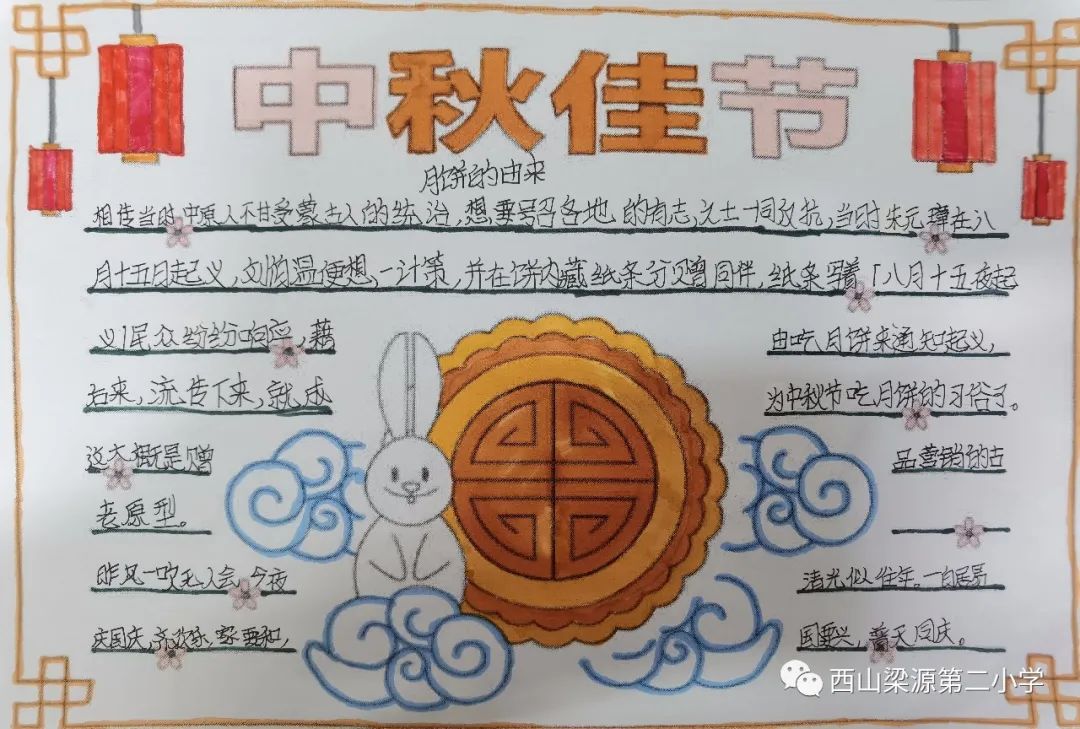 中秋佳节
月饼的由来
相传当时中原人不甘受蒙古人的统治,想要号召各地的有志之士一同反抗,当时朱元璋在八
月十五日起义,刘伯温便想一计策,并在饼内藏纸条分赠同伴,纸条写着「八月十五夜起
义」民众纷纷响应,藉 由吃月饼来通知起义,
后来,流传下来,就成 为中秋节吃月饼的习俗了。
这大概是赠 品营销的古
老原型。
昨风一吹无人会,今夜 清光似往年。一白居易
庆国庆,齐欢乐,家要和, 国要兴,普天同庆。
西山梁源第二小学